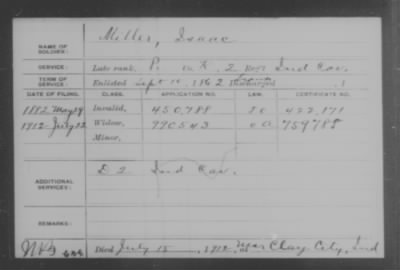 Miller, Isaac
NAME OF SOLDIER:
SERVICE: Late rank, P. Co. K, 2 Reg't Ind Cav.
TERM OF SERVICE: Enlisted Sept 10, 1862 Discharged , 1
DATE OF FILING. CLASS. APPLICATION NO. LAW. CERTIFICATE NO.
1882 May 29 Invalid, 450,788 422,171
1912 July 22 Widow, 990543 759788
Minor,
ADDITIONAL SERVICES: D 2 Ind Cav.
REMARKS:
Died July 15, 1912, near Clay City, Ind